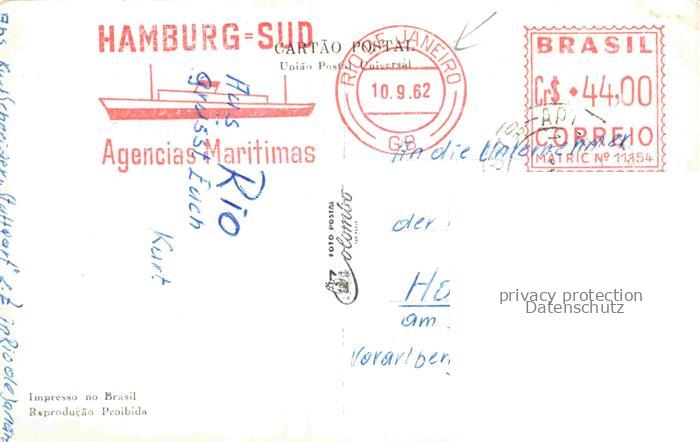 HAMBURG=SUD
CARTÃO POSTAL
União Postal Universal
Agencias Maritimas
RIO DE JANEIRO
10.9.62
GB
BRASIL
Cr$ 44,00
CORREIO
MATRIC Nº 11154
Aus Rio
grüsst Euch
Kurt
FOTO POSTAL
Colombo
An die Unternehmer
der
Ho
am
Vorarlber
privacy protection
Datenschutz
Abs. Kurt
Stuttgart z.Z. in Rio de Janeiro
Impresso no Brasil
Reprodução Proibida